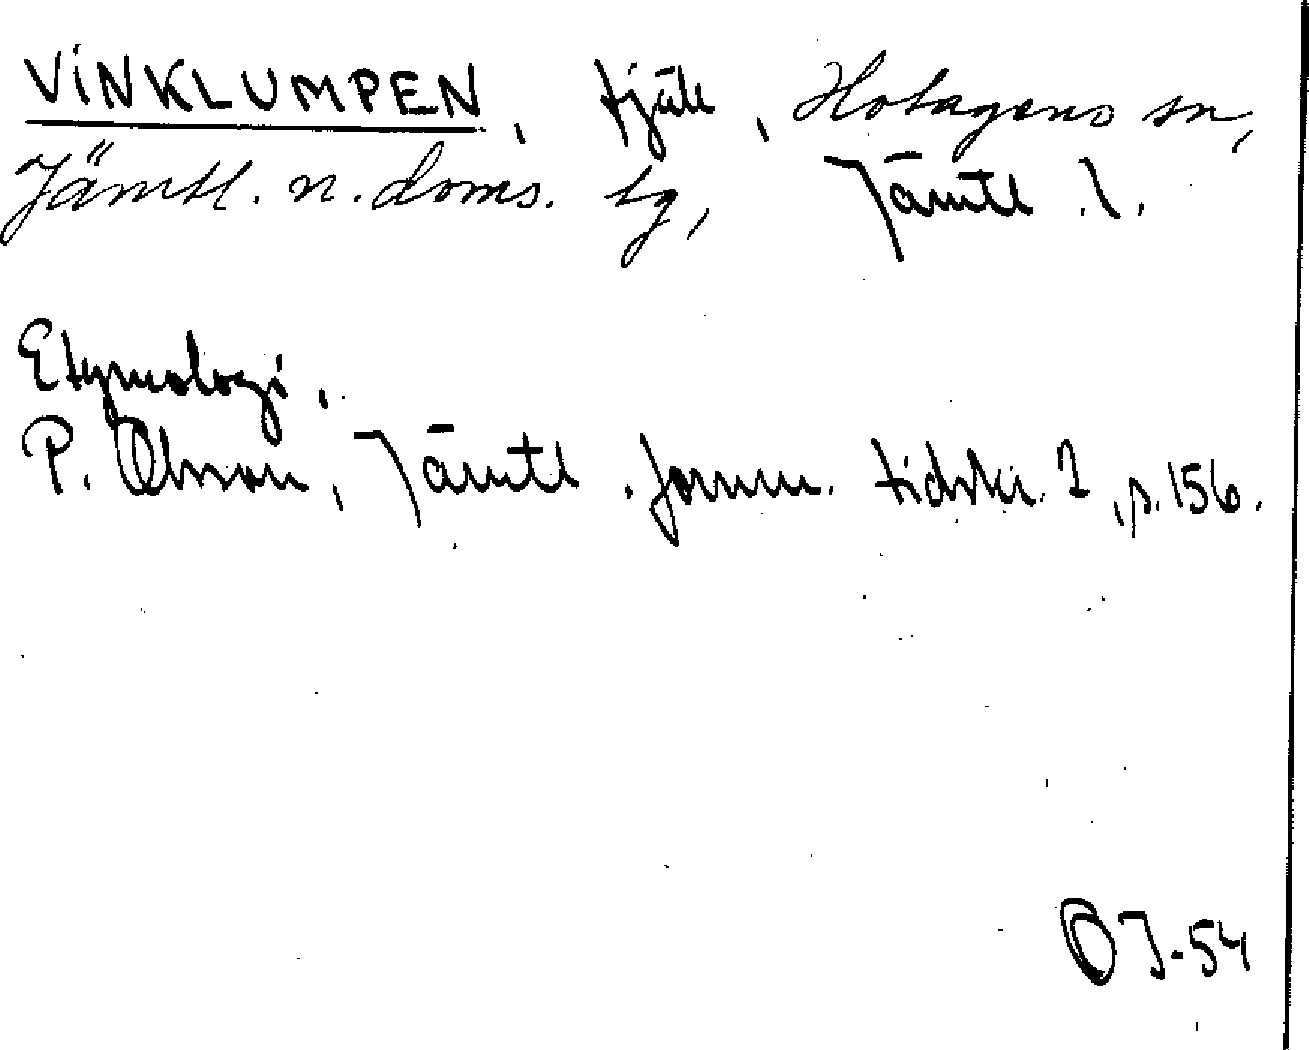 VINKLUMPEN, fjäll, Hotagens sn,
Jämtl. n. doms. tg, Jämtl. l.
Etymologi.
P. Olsson, Jämtl. fornm. tidskr. 2, p. 156.
OJ-54